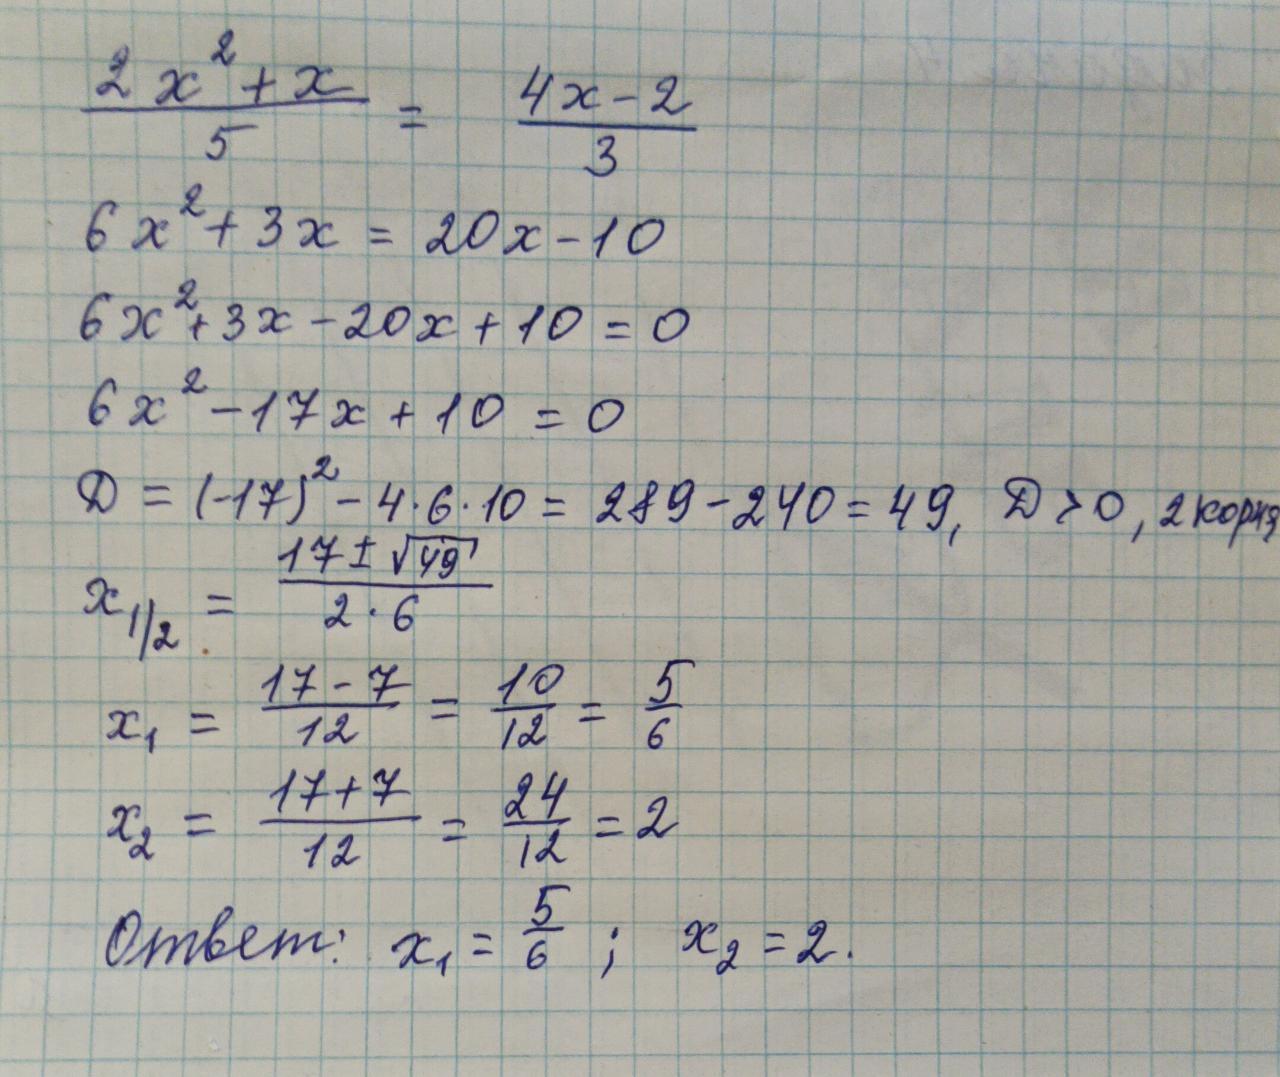 (2x² + x)/5 = (4x - 2)/3
6x² + 3x = 20x - 10
6x² + 3x - 20x + 10 = 0
6x² - 17x + 10 = 0
D = (-17)² - 4·6·10 = 289 - 240 = 49, D > 0, 2 корня
x₁/₂ = (17 ± √49)/(2·6)
x₁ = (17 - 7)/12 = 10/12 = 5/6
x₂ = (17 + 7)/12 = 24/12 = 2
Ответ: x₁ = 5/6 ; x₂ = 2.